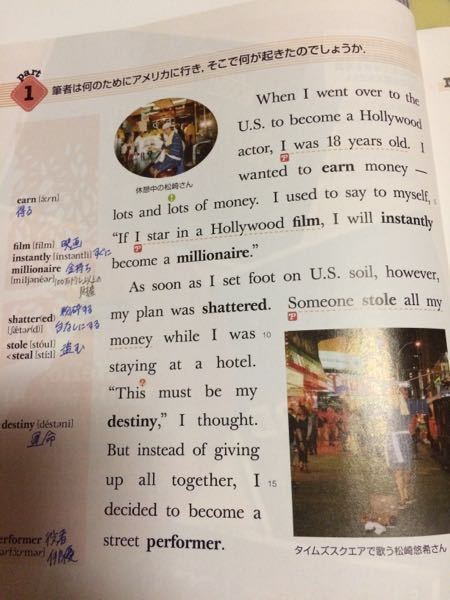 part
1
筆者は何のためにアメリカに行き，そこで何が起きたのでしょうか．
When I went over to the
U.S. to become a Hollywood
actor, I was 18 years old. I
wanted to earn money —
休憩中の松崎さん
lots and lots of money. I used to say to myself,
"If I star in a Hollywood film, I will instantly
become a millionaire."
As soon as I set foot on U.S. soil, however,
my plan was shattered. Someone stole all my
money while I was
10
staying at a hotel.
"This must be my
destiny," I thought.
But instead of giving
up all together, I
15
decided to become a
street performer.
タイムズスクエアで歌う松崎悠希さん
earn [ə́ːrn]
得る
film [fílm] 映画
instantly [ínstəntli] すぐに
millionaire 金持ち
[mìljənéər]
shatter(ed) 粉砕する
[ʃǽtər(d)] 台なしにする
stole [stóul] 盗む
<steal [stíːl]
destiny [déstəni]
運命
performer 役者
俳優